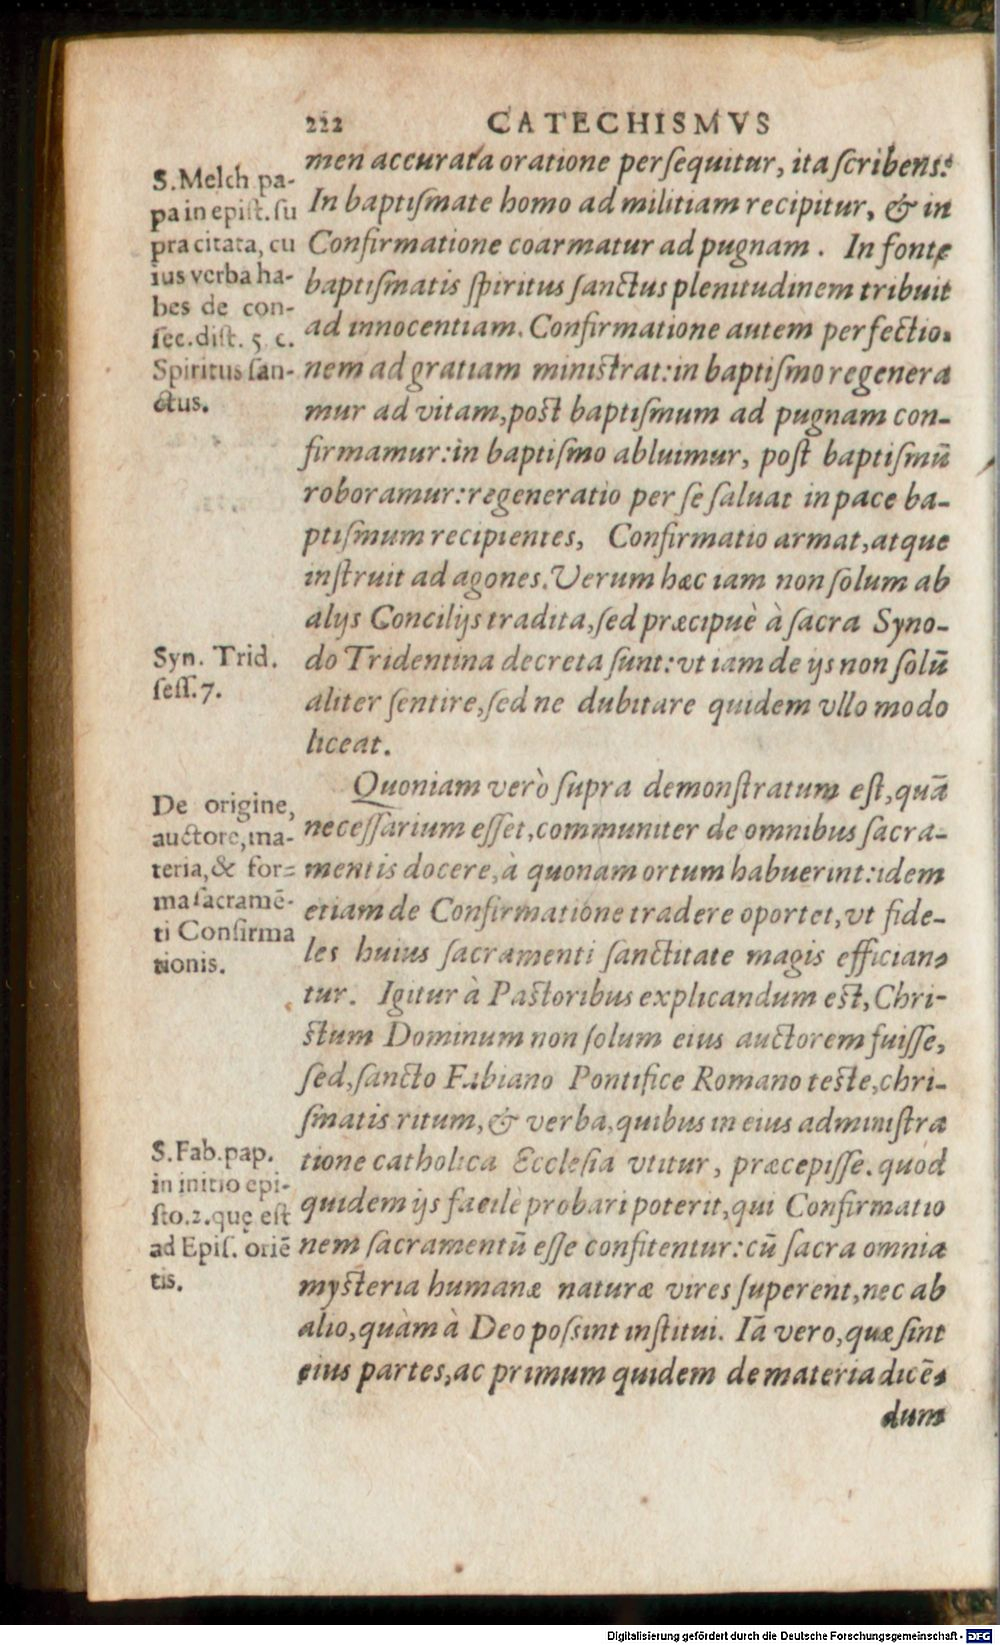 222 CATECHISMVS
men accurata oratione persequitur, ita scribens:
In baptismate homo ad militiam recipitur, & in
Confirmatione coarmatur ad pugnam. In fonte
baptismatis spiritus sanctus plenitudinem tribuit
ad innocentiam. Confirmatione autem perfectio-
nem ad gratiam ministrat: in baptismo regenera
mur ad vitam, post baptismum ad pugnam con-
firmamur: in baptismo abluimur, post baptismū
roboramur: regeneratio per se saluat in pace ba-
ptismum recipientes, Confirmatio armat, atque
instruit ad agones. Verum hæc iam non solum ab
alijs Concilijs tradita, sed præcipuè à sacra Syno-
do Tridentina decreta sunt: vt iam de ijs non solū
aliter sentire, sed ne dubitare quidem vllo modo
liceat.
Quoniam verò supra demonstratum est, quā
necessarium esset, communiter de omnibus sacra-
mentis docere, à quonam ortum habuerint: idem
etiam de Confirmatione tradere oportet, vt fide-
les huius sacramenti sanctitate magis effician-
tur. Igitur à Pastoribus explicandum est, Chri-
stum Dominum non solum eius auctorem fuisse,
sed, sancto Fabiano Pontifice Romano teste, chri-
smatis ritum, & verba, quibus in eius administra
tione catholica Ecclesia vtitur, præcepisse. quod
quidem ijs facilè probari poterit, qui Confirmatio
nem sacramentū esse confitentur: cū sacra omnia
mysteria humanæ naturæ vires superent, nec ab
alio, quàm à Deo possint institui. Iā vero, quæ sint
eius partes, ac primum quidem de materia dicē-
dum
S. Melch. pa-
pa in epist. su
pra citata, cu
ius verba ha-
bes de con-
sec. dist. 5. c.
Spiritus san-
ctus.
Syn. Trid.
sess. 7.
De origine,
auctore, ma-
teria, & for-
ma sacramē-
ti Confirma
tionis.
S. Fab. pap.
in initio epi-
sto. 2. quę est
ad Epis. oriē
tis.
Digitalisierung gefördert durch die Deutsche Forschungsgemeinschaft - DFG